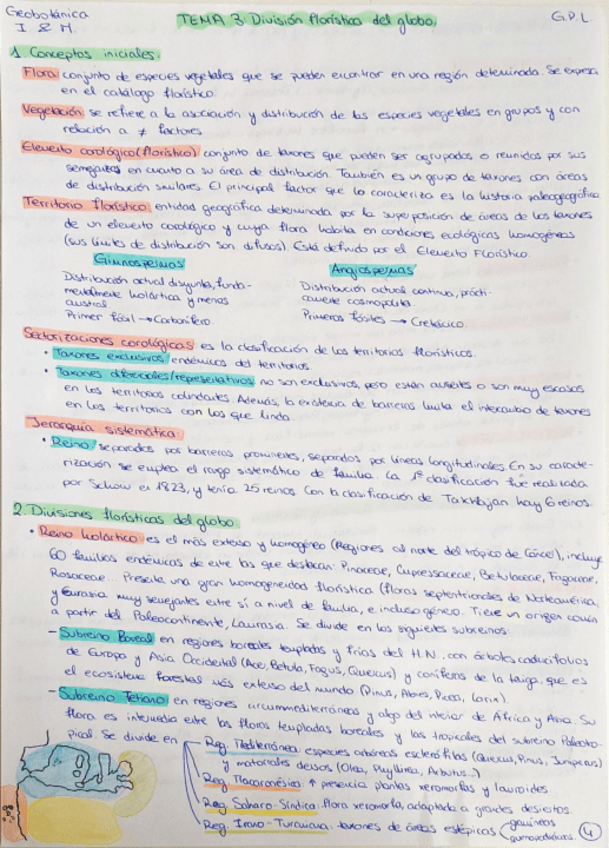 Geobotánica
I. & M.
TEMA 3: División florística del globo.
G.P.L.
1. Conceptos iniciales.
Flora conjunto de especies vegetales que se pueden encontrar en una región determinada. Se expresa
en el catálogo florístico.
Vegetación se refiere a la asociación y distribución de las especies vegetales en grupos y con
relación a ≠ factores.
Elemento corológico (florístico) conjunto de taxones que pueden ser agrupados o reunidos por sus
semejanzas en cuanto a su área de distribución. También es un grupo de taxones con áreas
de distribución similares. El principal factor que lo caracteriza es la historia paleogeográfica
Territorio florístico entidad geográfica determinada por la superposición de áreas de los taxones
de un elemento corológico y cuya flora habita en condiciones ecológicas homogéneas
(sus límites de distribución son difusos). Está definido por el Elemento Florístico.
Gimnospermas
Distribución actual disyunta, funda-
mentalmente holártica y menos
austral.
Primer fósil → Carbonífero.
Angiospermas
Distribución actual continua, prácti-
camente cosmopolita.
Primeros fósiles → Cretácico.
Sectorizaciones corológicas es la clasificación de los territorios florísticos.
• Taxones exclusivos endémicos del territorio.
• Taxones diferenciales/representativos no son exclusivos, pero están ausentes o son muy escasos
en los territorios colindantes. Además, la existencia de barreras limita el intercambio de taxones
en los territorios con los que linda.
Jerarquía sistemática:
• Reino: separados por barreras prominentes, separados por líneas longitudinales. En su caracte-
rización se emplea el rango sistemático de familia. La 1ª clasificación fue realizada
por Schow en 1823, y tenía 25 reinos. Con la clasificación de Takhtajan hay 6 reinos.
2. Divisiones florísticas del globo.
• Reino holártico es el más extenso y homogéneo (Regiones al norte del trópico de Cáncer), incluye
60 familias endémicas de entre las que destacan: Pinaceae, Cupressaceae, Betulaceae, Fagaceae,
Rosaceae... Presenta una gran homogeneidad florística (floras septentrionales de Norteamérica
y Eurasia muy semejantes entre sí a nivel de familia, e incluso género. Tiene un origen común
a partir del Paleocontinente, Laurasia. Se divide en los siguientes subreinos:
- Subreino Boreal en regiones boreales templadas y frías del H.N., con árboles caducifolios
de Europa y Asia Occidental (Acer, Betula, Fagus, Quercus) y coníferas de la taiga, que es
el ecosistema forestal más extenso del mundo (Pinus, Abies, Picea, Larix).
- Subreino Tetiano en regiones circunmediterráneas y algo del interior de África y Asia. Su
flora es intermedia entre las floras templadas boreales y las tropicales del subreino Paleotro-
pical. Se divide en
Reg. Mediterránea: especies arbóreas esclerófilas (Quercus, Pinus, Juniperus)
y matorrales densos (Olea, Phyllirea, Arbutus...)
Reg. Macaronésica ↑ presencia plantas xeromorfas y lauroides.
Reg. Saharo-Síndica: flora xeromorfa, adaptada a grandes desiertos.
Reg. Irano-Turaniana: taxones de áreas estépicas
gramíneas
4